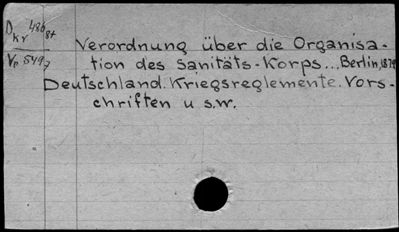 Verordnung über die Organisa-
tion des Sanitäts-Korps... Berlin, 187
Deutschland. Kriegsreglemente. Vors-
chriften u s.w.